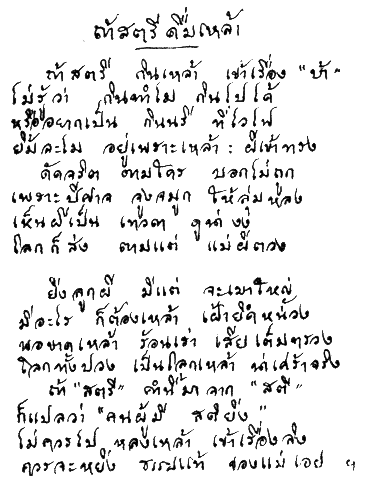 ถ้าสตรีดื่มเหล้า
ถ้าสตรี กินเหล้า เข้าเรื่อง "บ้า"
ไม่รู้ว่า กินทำไม กินไปได้
หรืออยากเป็น กินนรี ที่ไวไฟ
ยิ้มละไม อยู่เพราะเหล้า: ผีเข้าทรง
ดัดจริต ตามใคร บอกไม่ถูก
เพราะปีศาจ จูงจมูก ให้ลุ่มหลง
เห็นผีเป็น เทวดา ดูน่างง
โลกก็ส่ง ตามแต่ แม่ผีตวง
ยิ่งลูกผี มีแต่ จะเมาใหญ่
มีอะไร ก็ต้องเหล้า เฝ้ายึดหน่วง
พอขาดเหล้า ร้อนเร่า เสียเต็มทรวง
โลกทั้งปวง เป็นโลกเหล้า น่าเศร้าจริง
ถ้า "สตรี" คำนี้มาจาก "สติ"
ก็แปลว่า "คนผู้มี สติยิ่ง"
ไม่ควรไป หลงเหล้า เข้าเรื่องลิง
ควรจะหยิ่ง ธรรมแท้ ของแม่เอย ฯ